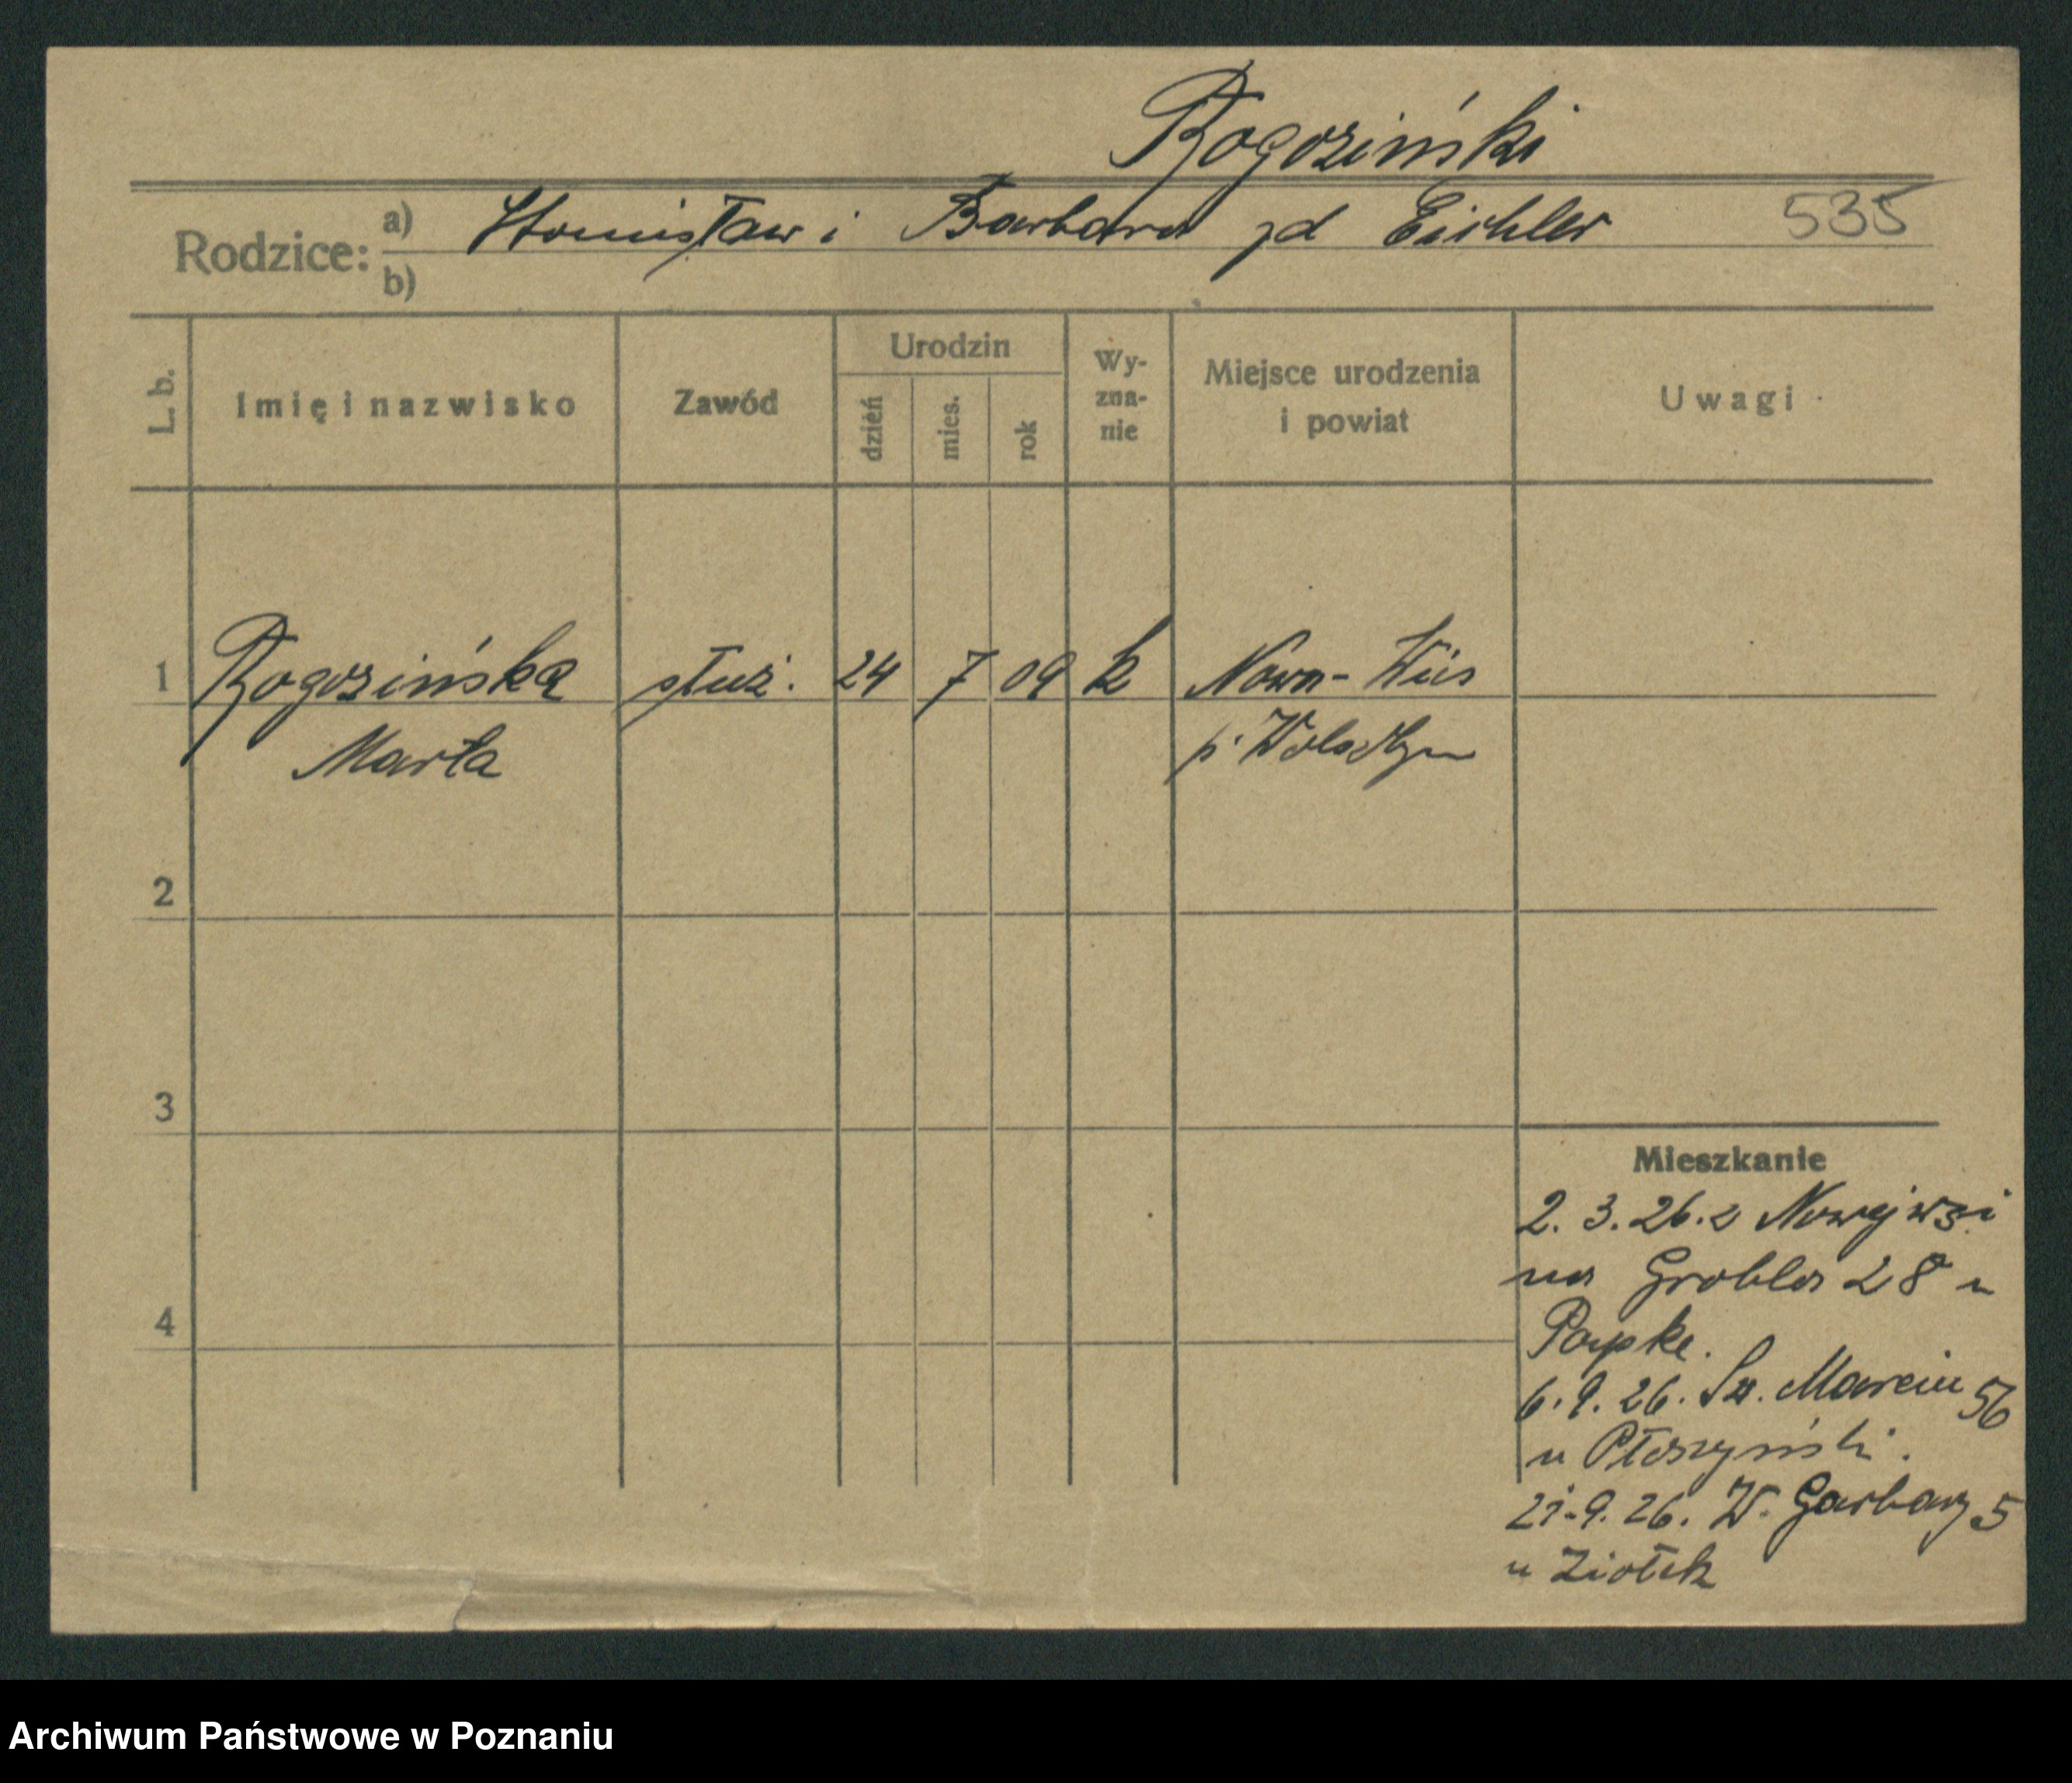 Rogoziński
Rodzice: a) Stanisław i Barbara zd Eichler 535
b)
L. b. Imię i nazwisko Zawód Urodzin dzień mies. rok Wy-zna-nie Miejsce urodzenia i powiat Uwagi
1 Rogozińska służ. 24 7 09 k Nowa-Wieś
Marta p. Wolsztyn
2
3
4
Mieszkanie
2. 3. 26. z Nowejwsi
na Grobla 28 u
Papke.
6. 9. 26. Św. Marcin 56
u Płoszyński.
21. 9. 26. W. Garbary 5
u Ziołek
Archiwum Państwowe w Poznaniu